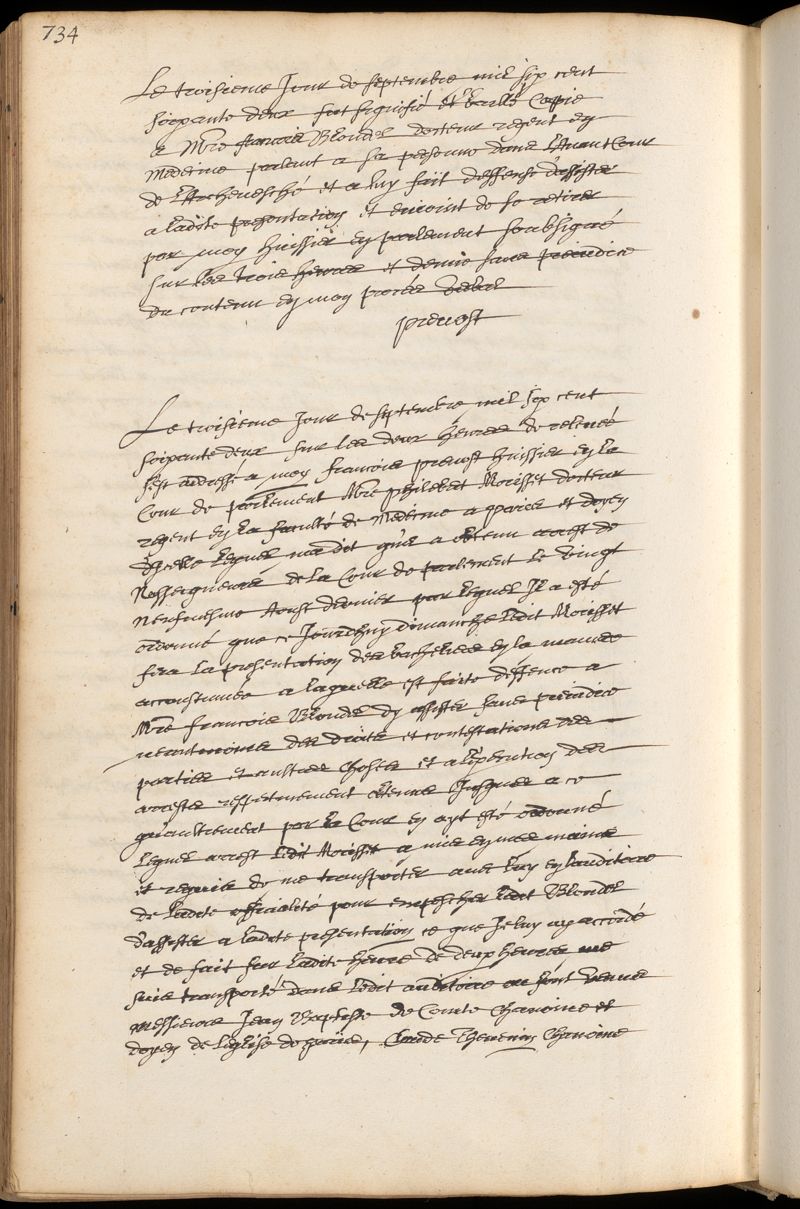 734
Le troisieme Jour de septembre mil six cent
soixante deux fut signifié et baillé Coppie
a Mre francois Blondel docteur regent en
Medecine parlant a sa personne dans l'Avant Cour
de L'Archevesché et a luy fait deffense d'assister
a ladite presentation et enioint de se retirer
par moy huissier en parlement soubsigné
sur les trois heures et demie sans preiudice
du contenu en mon proces verbal
preuost
Le troisieme Jour de septembre mil six cent
soixante deux sur les deux heures de relevée
s'est addressé a moy francois preuost huissier en la
Cour de parlement Mre philebert Morisset docteur
regent en la faculté de Medecine a paris et doyen
d'icelle lequel m'a dit qu'il a obtenu arrest de
Nosseigneurs de la Cour de parlement le vingt
neufuiesme Aoust dernier par lequel Il a esté
ordonné que ce Jourd'huy dimanche ledit Morisset
fera la presentation des bacheliers en la maniere
accoustumée a laquelle est faite deffence a
Mre francois Blondel d'y assister sans preiudice
neantmoins des droits et contestations des
parties et autres choses et a l'execution des
arrests restrictivement obtenus Jusques a ce
qu'autrement par la Cour en ayt esté ordonné
lequel arrest ledit Morisset a mis en mes mains
et requis de me transporter avec luy en l'auditoire
de ladite officialité pour empescher ledit Blondel
d'assister a ladite presentation ce que Je luy ay accordé
et de fait sur ladite heure de deux heures me
suis transporté dans ledit auditoire ou sont venus
Messieurs Jean Baptiste de Contes Chanoine et
doyen de l'eglise de paris, Claude Thevenin Chanoine